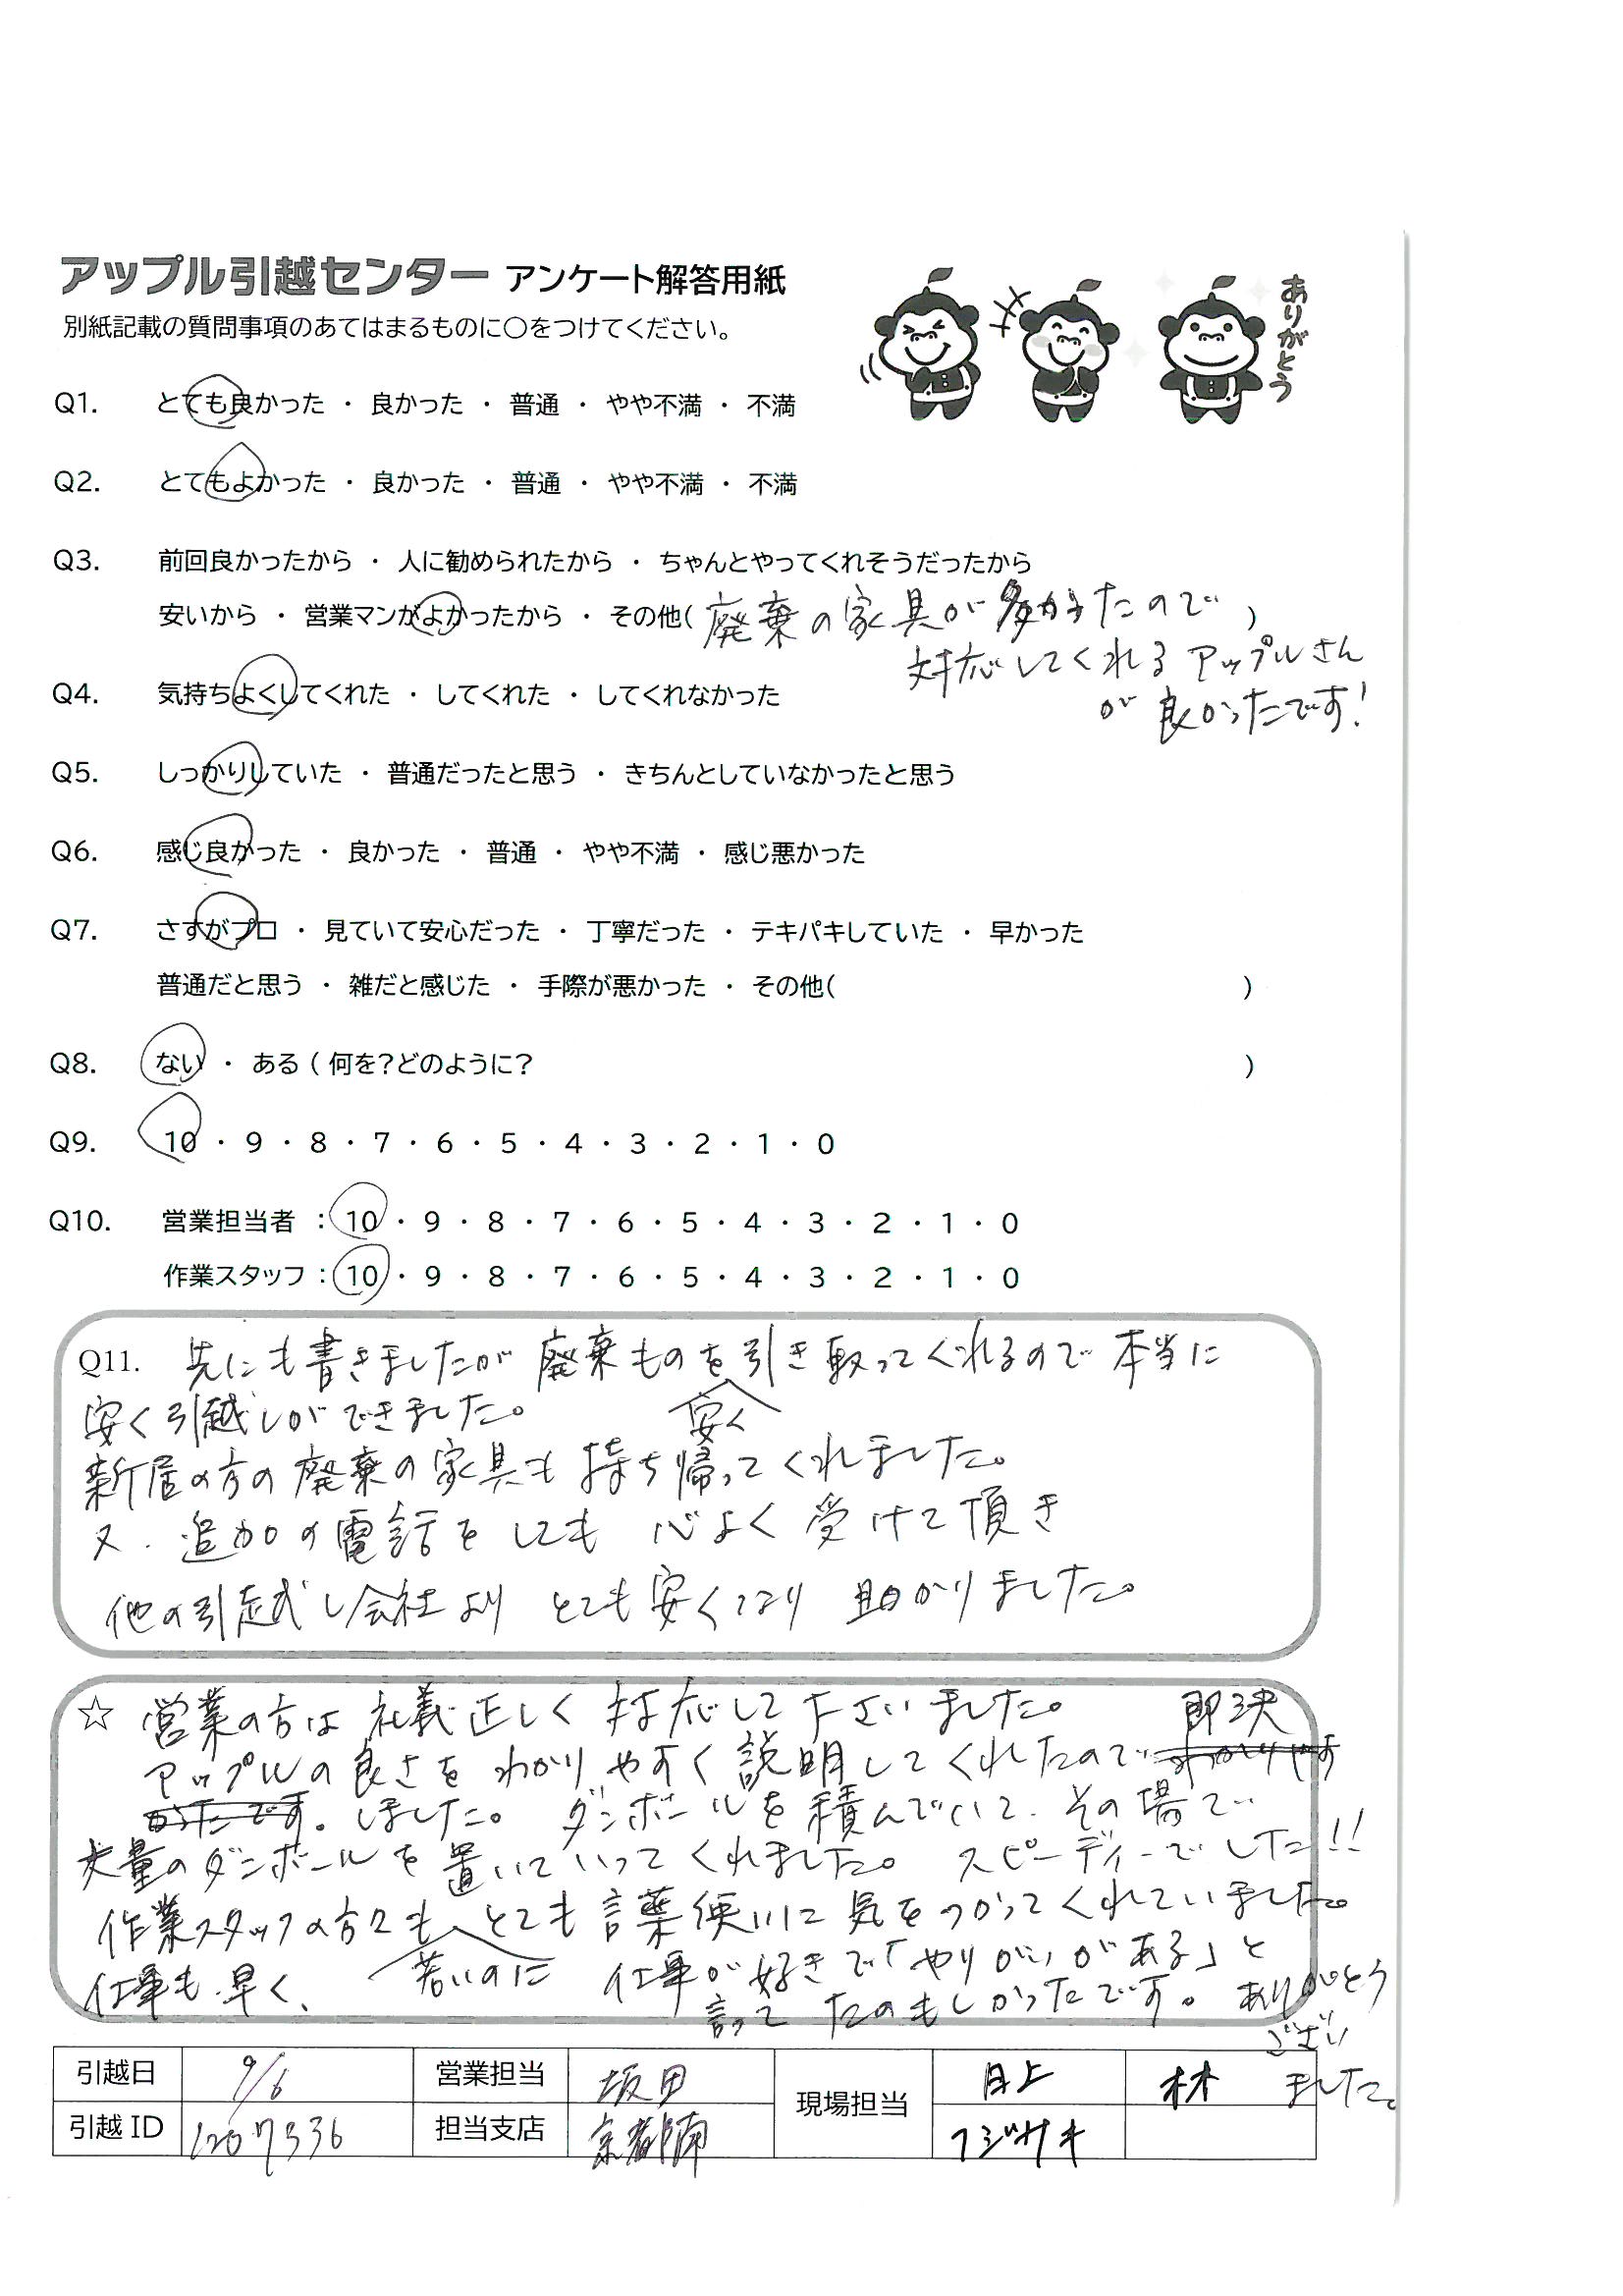 アップル引越センター アンケート解答用紙
別紙記載の質問事項のあてはまるものに〇をつけてください。
ありがとう
Q1. とても良かった ・ 良かった ・ 普通 ・ やや不満 ・ 不満
Q2. とてもよかった ・ 良かった ・ 普通 ・ やや不満 ・ 不満
Q3. 前回良かったから ・ 人に勧められたから ・ ちゃんとやってくれそうだったから
安いから ・ 営業マンがよかったから ・ その他( 廃棄の家具が多かったので )
対応してくれるアップルさん
が良かったです!
Q4. 気持ちよくしてくれた ・ してくれた ・ してくれなかった
Q5. しっかりしていた ・ 普通だったと思う ・ きちんとしていなかったと思う
Q6. 感じ良かった ・ 良かった ・ 普通 ・ やや不満 ・ 感じ悪かった
Q7. さすがプロ ・ 見ていて安心だった ・ 丁寧だった ・ テキパキしていた ・ 早かった
普通だと思う ・ 雑だと感じた ・ 手際が悪かった ・ その他( )
Q8. ない ・ ある ( 何を?どのように? )
Q9. 10 ・ 9 ・ 8 ・ 7 ・ 6 ・ 5 ・ 4 ・ 3 ・ 2 ・ 1 ・ 0
Q10. 営業担当者 : 10 ・ 9 ・ 8 ・ 7 ・ 6 ・ 5 ・ 4 ・ 3 ・ 2 ・ 1 ・ 0
作業スタッフ : 10 ・ 9 ・ 8 ・ 7 ・ 6 ・ 5 ・ 4 ・ 3 ・ 2 ・ 1 ・ 0
Q11. 先にも書きましたが廃棄ものを安く引き取ってくれるので本当に
安く引越しができました。
新居の方の廃棄の家具も持ち帰ってくれました。
又、追加の電話をしても心よく受けて頂き
他の引越し会社よりとても安くなり助かりました。
☆ 営業の方は礼義正しく対応して下さいました。
アップルの良さをわかりやすく説明してくれたので即決
しました。ダンボールを積んでいて、その場で
大量のダンボールを置いていってくれました。スピーディーでした!!
作業スタッフの方々も若いのにとても言葉使いに気をつかってくれていました。
仕事も早く、仕事が好きで「やりがいがある」と
言ってたのもしかったです。ありがとう
ござい
ました。
引越日 9/6 営業担当 坂田 現場担当 月上 林
引越ID 1207536 担当支店 京都南 フジサキ